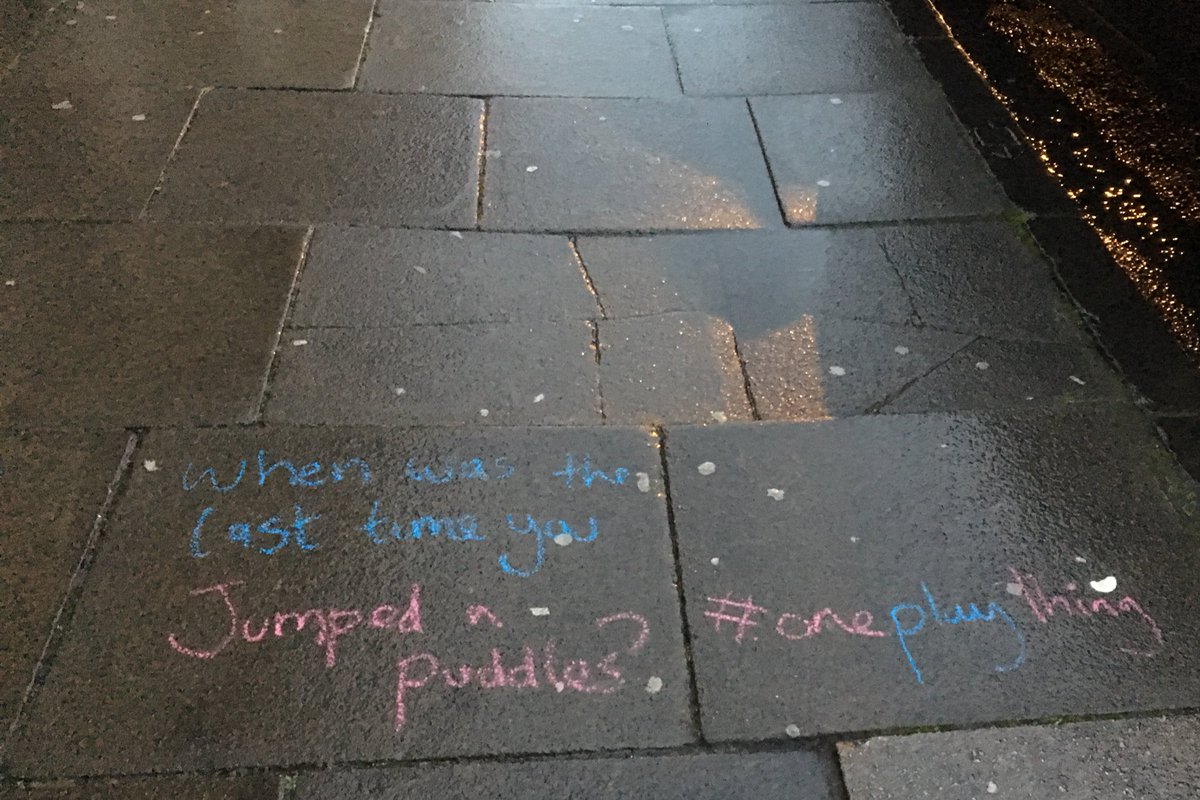 when was the
last time you
Jumped n
puddles?
#oneplaything